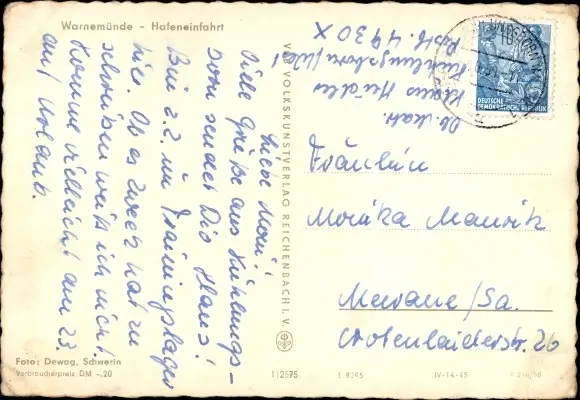 Warnemünde - Hafeneinfahrt
Liebe Moni!
Viele Grüße aus Kühlungs-
born sendet Dir Klaus!
Bin z. Z. im Trainingslager
hier. Ob es Zweck hat zu
schreiben weiß ich nicht.
Komme vielleicht am 23.
auf Urlaub.
Foto: Dewag, Schwerin
Verbraucherpreis DM -.20
VEB VOLKSKUNSTVERLAG REICHENBACH I. V.
1/2575
Ob. Matr.
Klaus
Kühlungsborn/West
Postf. 4930 X
DEUTSCHE
DEMOKRATISCHE REPUBLIK
Fräulein
Monika
Meerane/Sa.
26
L 8245
IV-14-45